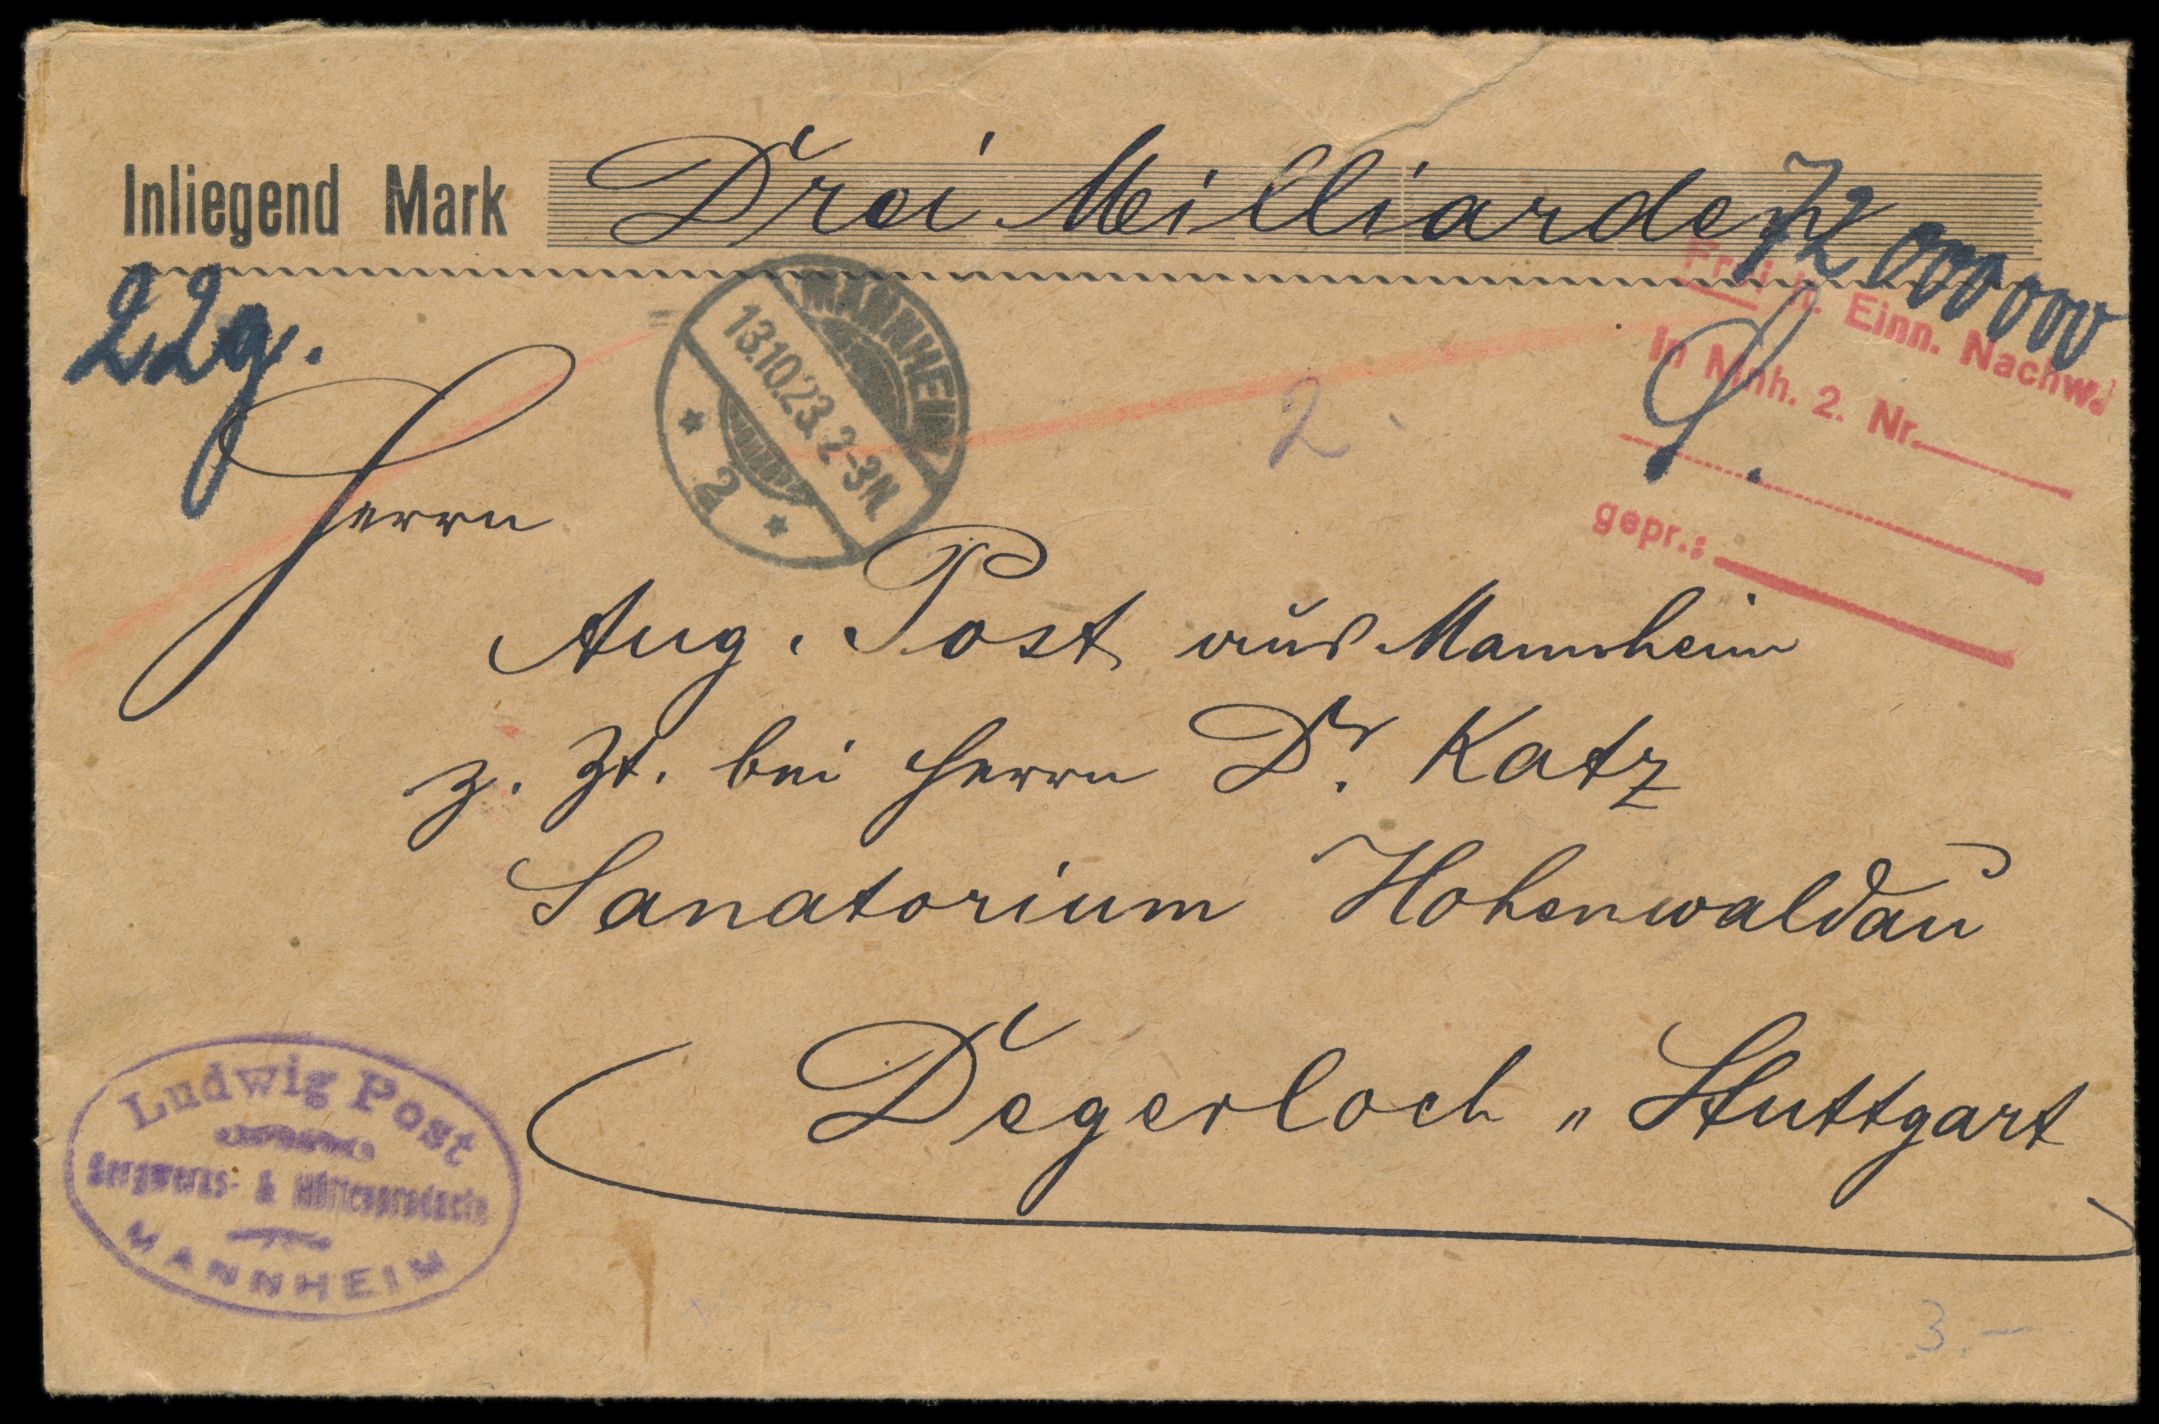 Inliegend Mark Drei Milliarden
72 000 000
22 g.
MANNHEIM
13.10.23. 2-3 N.
* 2 *
Frei lt. Einn. Nachw.
In Mnh. 2. Nr.
gepr.:
2
Herrn
Aug. Post aus Mannheim
z. Zt. bei Herrn Dr. Katz
Sanatorium Hohenwaldau
Degerloch " Stuttgart
Ludwig Post
Bergwerks- & Hüttenproducte
MANNHEIM
3.-